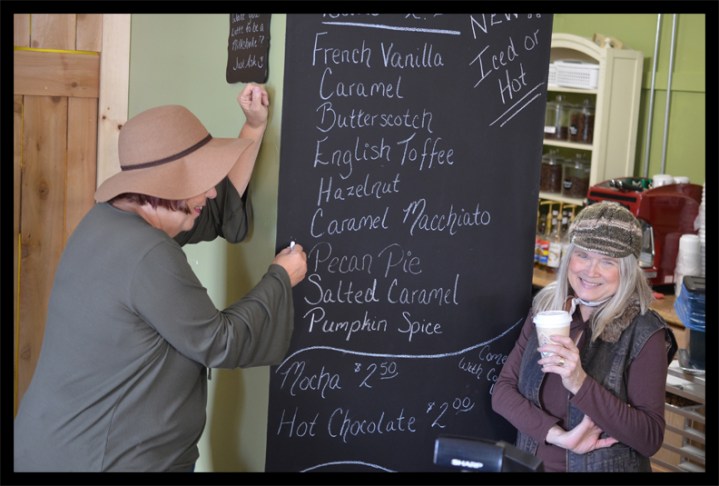 to be a
milkshake?
Just Ask :)
NEW!!
Iced or
Hot
French Vanilla
Caramel
Butterscotch
English Toffee
Hazelnut
Caramel Macchiato
Pecan Pie
Salted Caramel
Pumpkin Spice
Mocha $2.50
Come
with
Hot Chocolate $2.00
SHARP